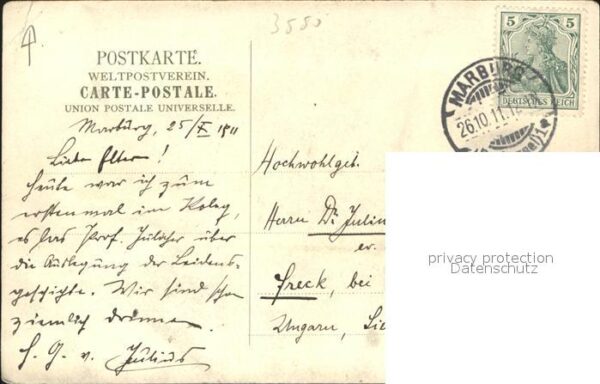 3550
POSTKARTE.
WELTPOSTVEREIN.
CARTE-POSTALE.
UNION POSTALE UNIVERSELLE.
5 5
DEUTSCHES REICH
MARBURG
26.10.11.
Marburg, 25/X 1911
Liebe Eltern!
Heute war ich zum
erstenmal im Kolleg,
es las Prof. Jülicher über
die Auslegung der Leidens-
geschichte. Wir sind schon
ziemlich drinnen.
H. G. v. Julius
Hochwohlgeb.
Herrn Dr. Julius
ev.
Freck, bei
Ungarn,
privacy protection
Datenschutz